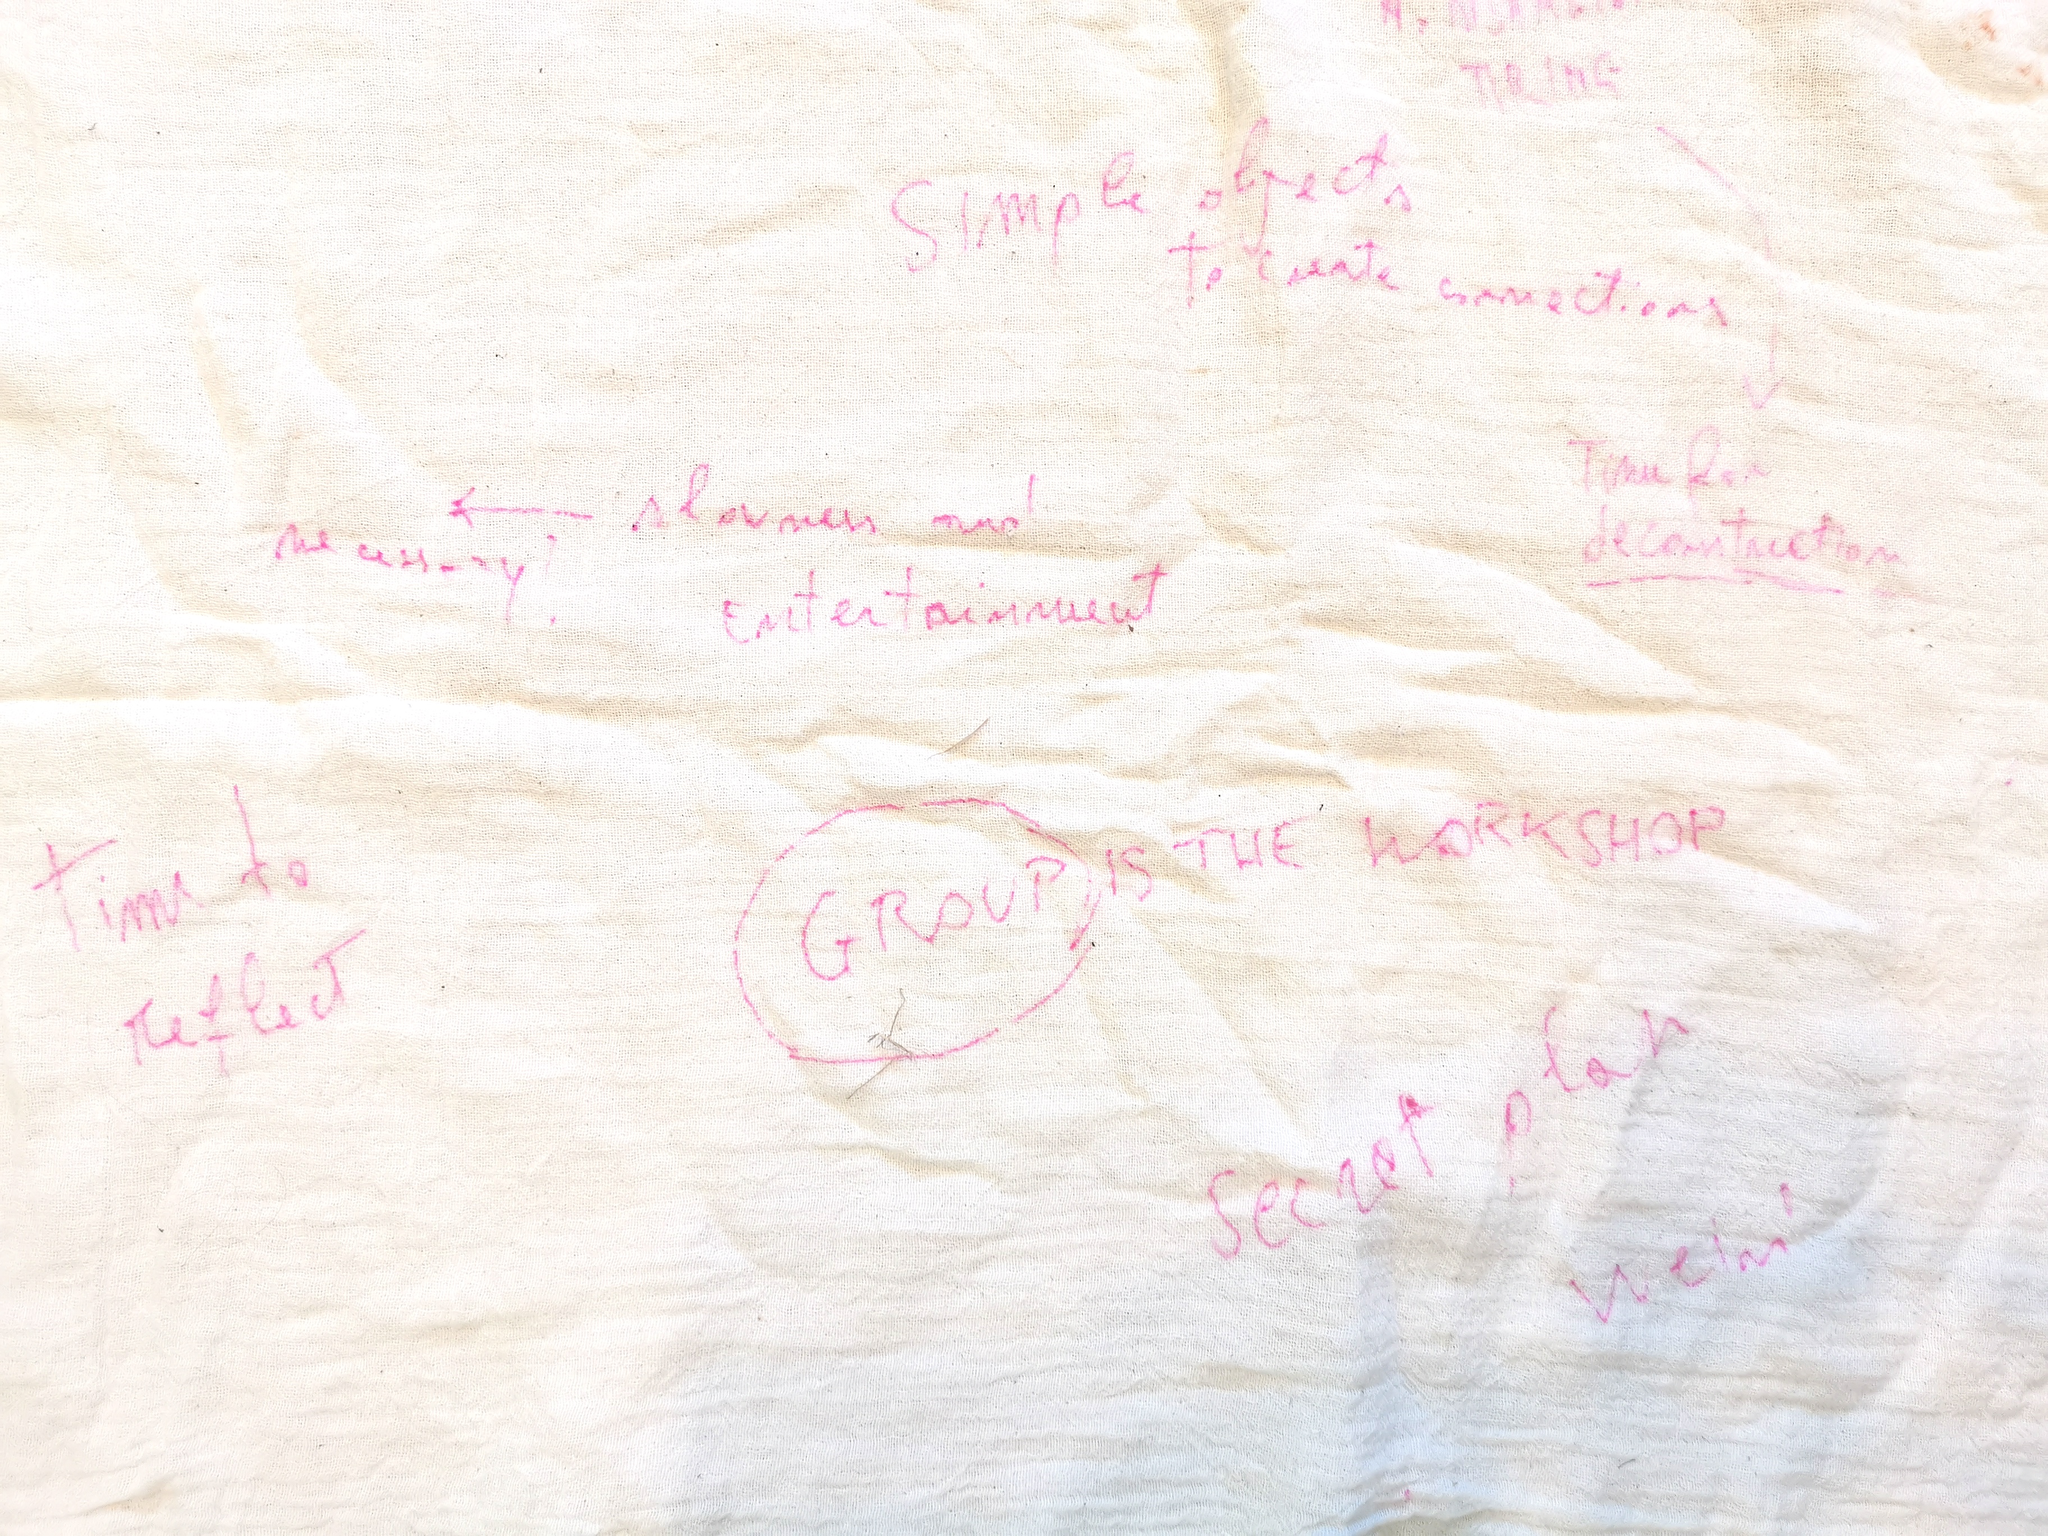 TIRING
SIMple objects
to create connections
Time for
deconstruction
slowness and
Entertainment
necessary!
Time to
reflect
GROUP IS THE WORKSHOP
Secret plan